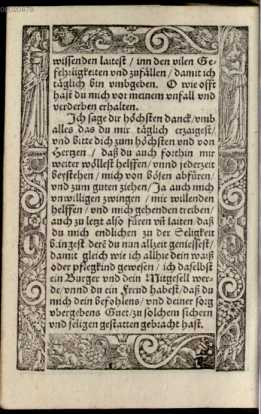 wissenden laitest / inn den vilen Ge-
fehrligkeiten vnd zufällen / damit ich
täglich bin vmbgeben. O wie offt
hast du mich vor meinem vnfall vnd
verderben erhalten.
Ich sage dir höchsten danck / vmb
alles das du mir täglich erzaigest /
vnd bitte dich zum höchsten vnd von
Hertzen / daß du auch forthin mir
weiter wöllest helffen / vnnd jederzeit
beystehen / mich von bösen abfüren /
vnd zum guten ziehen / Ja auch mich
vnwilligen zwingen / mir willenden
helffen / vnd mich gehenden treiben
auch zu letzt also füren vñ laiten daß
du mich endlichen zu der Seligkeit
bringest derē du nun allzeit geniessest /
damit gleich wie ich allhie dein waiß
oder pflegkind gewesen / ich daselbst
ein Burger vnd dein Mitgesell wer-
de / vnnd du ein Frewd habest / daß du
mich dein befohlens / vnd deiner sorg
vbergebens Guet / zu solchem sichern
vnd seligen gestatten gebracht hast.